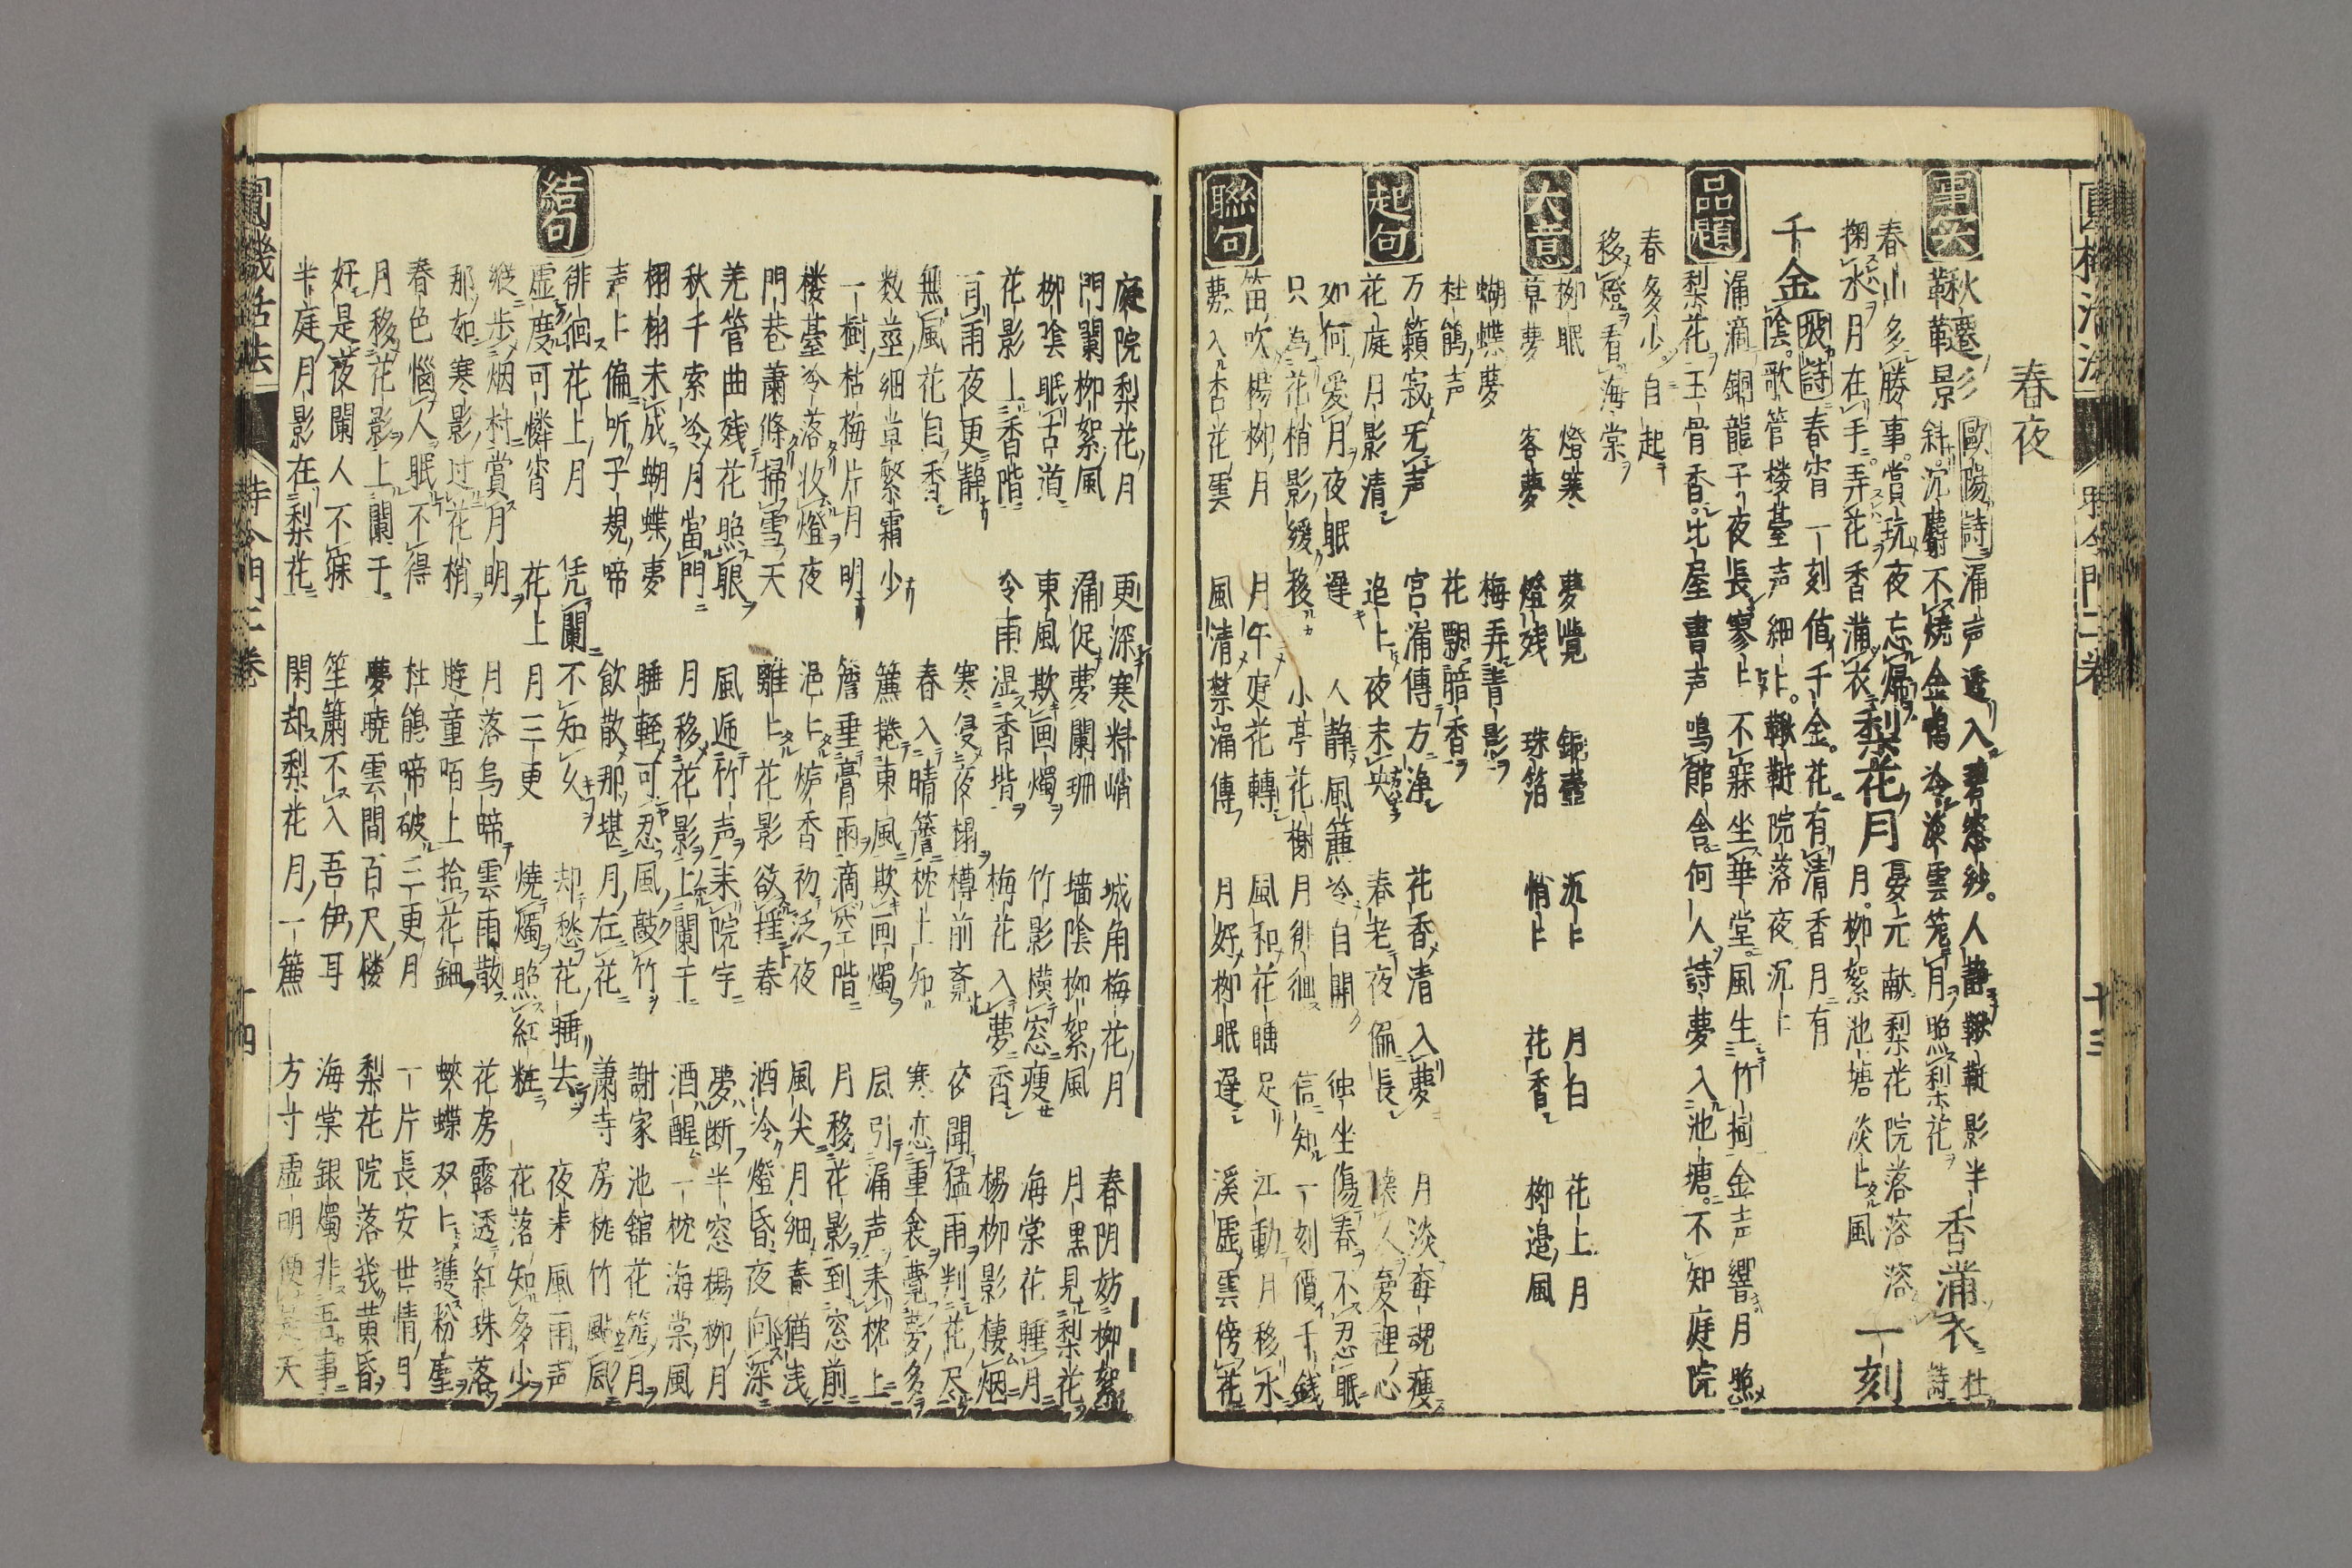 春夜
事実
鞦韆影 歐陽詩 漏声透入碧窓紗。人静鞦韆影半 香滿衣 杜詩
鞦韆影斜。沉麝不焼金鴨冷淡雲篭月照梨花
春山多勝事。賞玩夜忘帰 梨花月 晏元献 梨花院落溶溶
掬水月在手。弄花香滿衣 月。柳絮池塘淡上風 一刻
千金 陰。歌管楼臺声細上。鞦韆院落夜沉上
坡詩 春宵一刻値千金。花有清香月有
品題
漏滴銅龍子夜長寥上不寐坐華堂。風生竹樹金声響月照
梨花玉骨香。比屋書声鳴館舎。何人詩夢入池塘。不知庭院
春多少自起
移燈看海棠
大意
柳眠 燈寒 夢覚 銀壺 沉上 月白 花上月
草夢 客夢 燈残 珠箔 悄上 花香 柳邉風
蝴蝶夢 梅弄青影
杜鵑声 花飄腤香
起句
万籟寂无声 宮漏傳方浄 花香清入夢 月淡毎魂痩
花庭月影清 追上夜未央 春老夜偏長 人愛裡心
如何愛月夜眠遅 人静風簾冷自開 独坐傷春不忍眠
只為花梢影緩移 小亭花榭月徘徊 信知一刻價千銭
聯句
笛吹楊柳月 月午庭花轉 風和花睡足 江動月移水
夢入杏花雲 風清禁漏傳 月好柳眠遅 溪虚雲傍花
圓機活法 時令門二巻 十三
庭院梨花月 更深寒料峭 城角梅花月 春陰妨柳絮
門闌柳絮風 漏促夢闌珊 墻陰柳絮風 月黒見梨花
柳陰眠古道 東風欺画燭 竹影横窓痩 海棠花睡月
花影上香階 冷雨湿香堦 梅花入夢香 楊柳影棲烟
一有雨夜更静 寒侵夜榻樽前斎 夜聞猛雨判花尽
無風花自香 春入晴簷枕上知 寒恋重衾覚夢多
数莖細草繁霜少 簾捲東風欺画燭 風引漏声来枕上
一樹枯梅片月明 簷垂膏雨滴空階 月移花影到窓前
楼臺冷落收燈夜 浥上爐香初泛夜 風尖月細春猶浅
門巷蕭條掃雪天 離上花影欲揺春 酒冷燈昏夜向深
羌管曲残花照眼 風逓竹声来院宇 夢断半窓楊柳月
秋千索冷月當門 月移花影上闌干 酒醒一枕海棠風
栩栩未成蝴蝶夢 睡軽可忍風敲竹 謝家池舘花篭月
声上偏听子規啼 飲散那堪月在花 蕭寺房櫳竹颭風
結句
徘徊花上月 凭闌不知久 却愁花睡去 夜来風雨声
虚度可憐宵 花上月三更 焼燭照紅粧 花落知多少
緩歩烟村賞月明 月落烏啼雲雨散 花房露透紅珠落
那如寒影过花梢 遊童陌上拾花鈿 蛺蝶双上護粉塵
春色悩人眠不得 杜鵑啼破三更月 一片長安世情月
月移花影上闌干 夢暁雲間百尺楼 梨花院落幾黄昏
好是夜闌人不寐 笙簫不入吾伊耳 海棠銀燭非吾事
半庭月影在梨花 閑却梨花月一簾 方寸虚明便是天
圓機活法 時令門二巻 十四